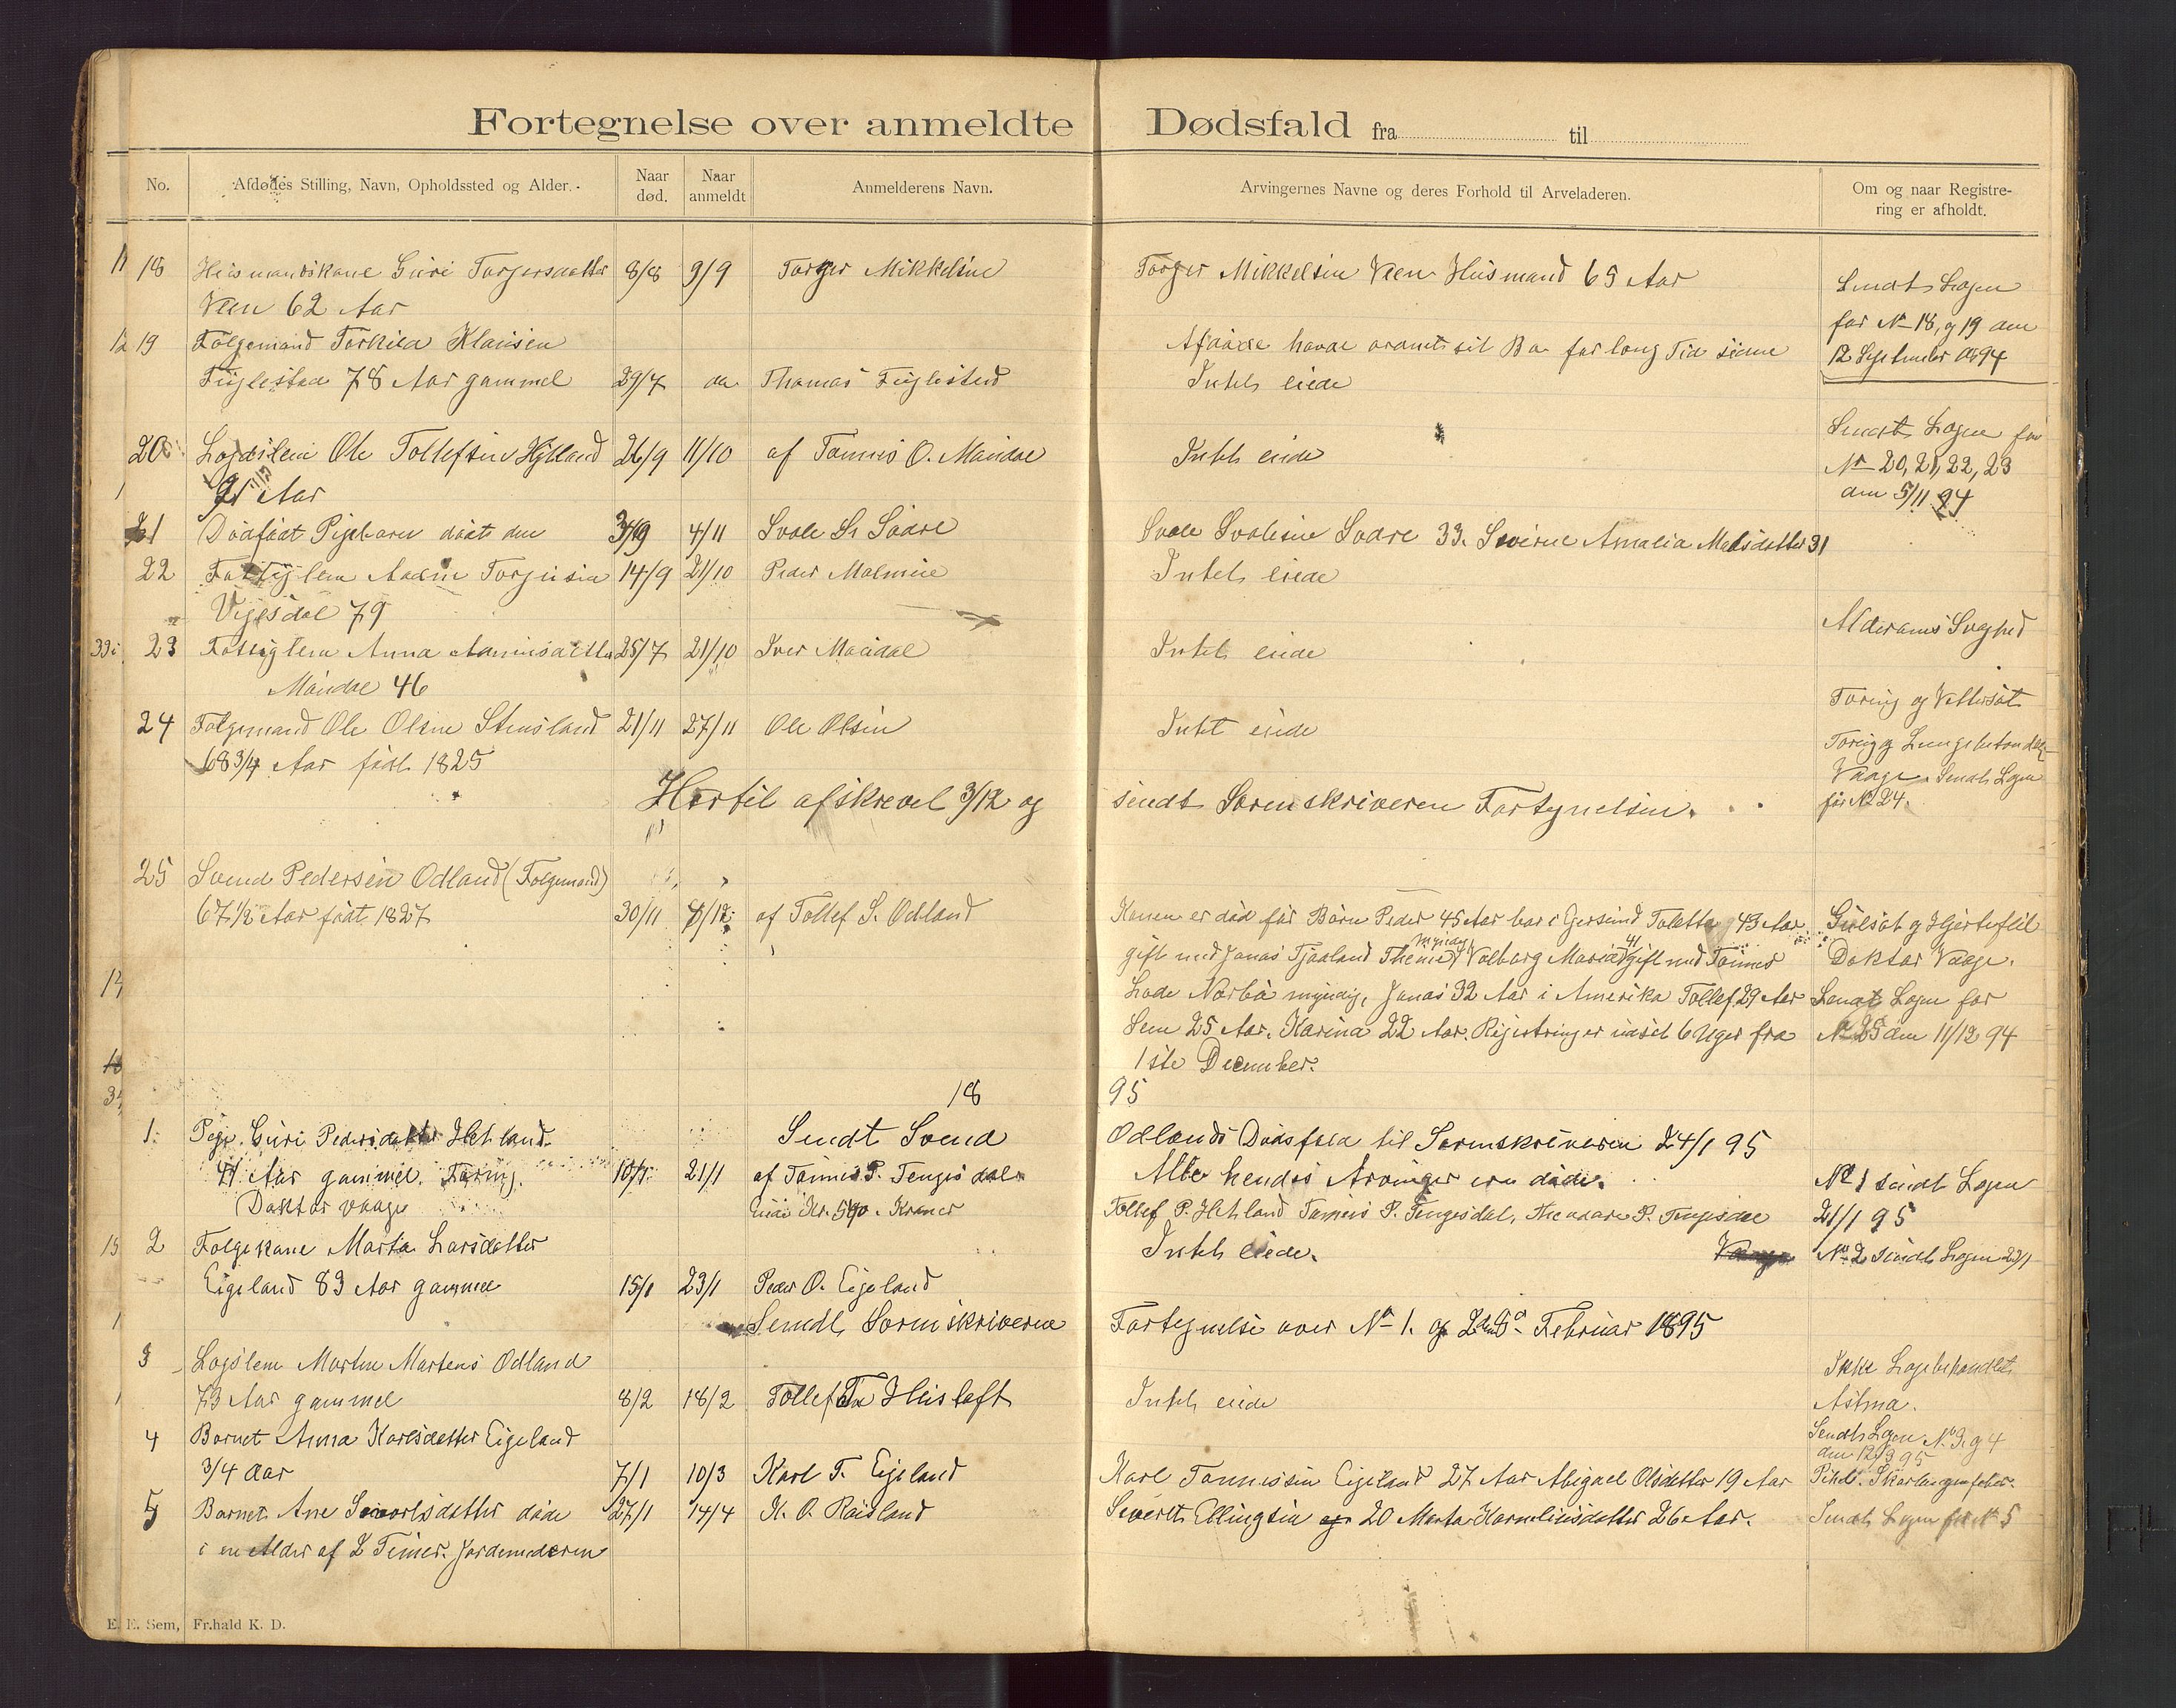 Fortegnelse over anmeldte Dødsfald fra til
No. Afdødes Stilling, Navn, Opholdssted og Alder. Naar død. Naar anmeldt Anmelderens Navn. Arvingernes Navne og deres Forhold til Arveladeren. Om og naar Registrering er afholdt.
11 18 Husmandskone Guri Torgersdatter 8/8 9/9 Torger Mikkelsen Torger Mikkelsen Veen Husmand 65 Aar Sendt Logen
Veen 62 Aar for No 18, og 19 den
12 19 Folgemand Torkild Klausen Afdøde havde aramt sit Bo for long Tid siden 12 September 1894
Fuglestad 78 Aar gammel 29/7 do Thomas Fuglestad Intet eiede
Sendt Logen for
20 Logdslem Ole Tollefsen Hytland 26/9 11/10 af Tønnes O. Maudal Intet eiede No 20, 21, 22, 23
91 Aar den 5/11 94
21 Dødfødt Pigebarn dødt den 3/9 4/11 Svale Sødre Svale Svalesen Sødre 33. Severine Amalia Melsdatter 31
22 Fattiglem Aadne Torgersen 14/9 21/10 Peder Malmeie Intet eiede
Vigesdal 79 Alderdoms Svaghed
23 Fattiglem Anna Aanensdatter 25/7 21/10 Iver Maudal Intet eiede
Maudal 46
Tæring og Vattersot
24 Folgemand Ole Olsen Stensland 21/11 27/11 Ole Olsen Intet eiede
68 3/4 Aar født 1825 Vaage. Sendt Logen
Hertil afskrevet 3/12 og sendt Sorenskriveren Fortegnelsen. for No 24.
25 Svend Pedersen Odland (Folgemand)
67 1/2 Aar født 1827 30/11 8/12 af Tollef S. Odland Konen er død før Børn Peder 45 Aar bor i Egersund Toletta 43 Aar Gulsot og Hjertefeil
myndig 41
gift med Jonas Tjaaland Volborg Maria gift med Tønnes Doktor Vaage.
Lode Nærbø myndig, Jonas 32 Aar i Amerika Tollef 29 Aar Sendt Logen for
Sem 25 Aar. Karina 22 Aar. Rigestring er udsat 6 Uger fra No 25 den 11/12 94
1ste December.
18 95
1. Pige. Guri Pedersdatter Hetland Sendt Svend Odlands Dødsfald til Sorenskriveren 24/1 95
41 Aar gammel. Tæring. 10/1 21/1 af Tønnes P. Tengesdal Alle hendes Arvinger ere døde. No 1 sendt Logen
Doktor Vaage Eiede Kr. 590. Kroner Tollef P. Hetland Tønnes P. Tengesdal, Theodore P. Tengesdal 21/1 95
2 Folgekone Marta Larsdatter Intet eiede. No 2 sendt Logen 23/1
Eigeland 83 Aar gammel 15/1 23/1 Peder O. Eigeland
Sendt Sorenskriveren Fortegnelse over No 1. og 2 den 5d. Februar 1895
3 Logslem Marten Martens Odland Ikke Logebehandlet
73 Aar gammel 8/2 18/2 Tollef Husloft Intet eiede Astma.
4 Barnet Anna Karlsdatter Eigeland Sendt Logen No 3 og 4
den 12/3 95
3/4 Aar 7/1 10/3 Karl T. Eigeland Karl Tønnessen Eigeland 27 Aar Abigael Olsdatter 19 Aar
5 Barnet Ane Sivertsdatter døde 27/1 14/4 K. O. Røisland Sivert Ellingsen 20 Marta Karneliusdatter 26 Aar. Sendt Logen for No 5
i en Alder af 2 Timer. Jordemoderen
E. E. Sem, Fr.hald K. D.